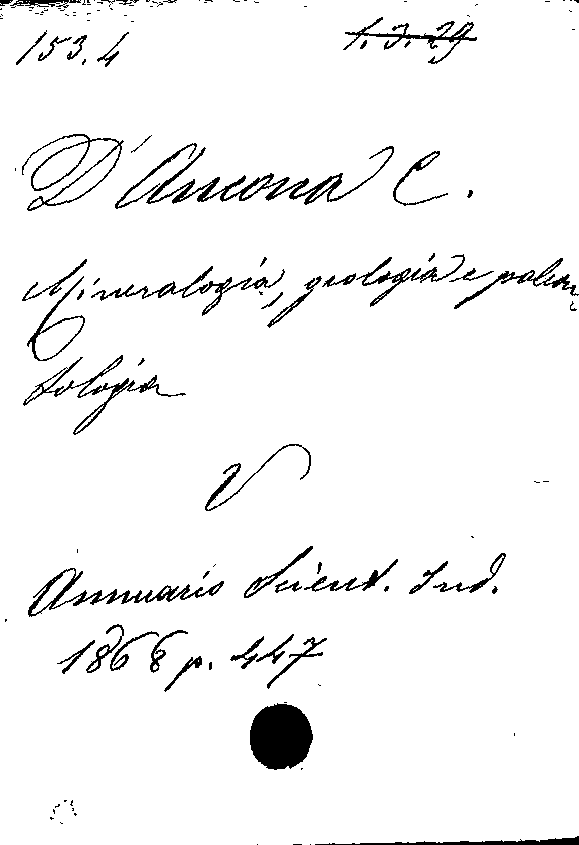 153.4 1.3.29
D'Ancona C.
Mineralogia, geologia e paleon
tologia
V
Annuario Scient. Ind.
1868 p. 447